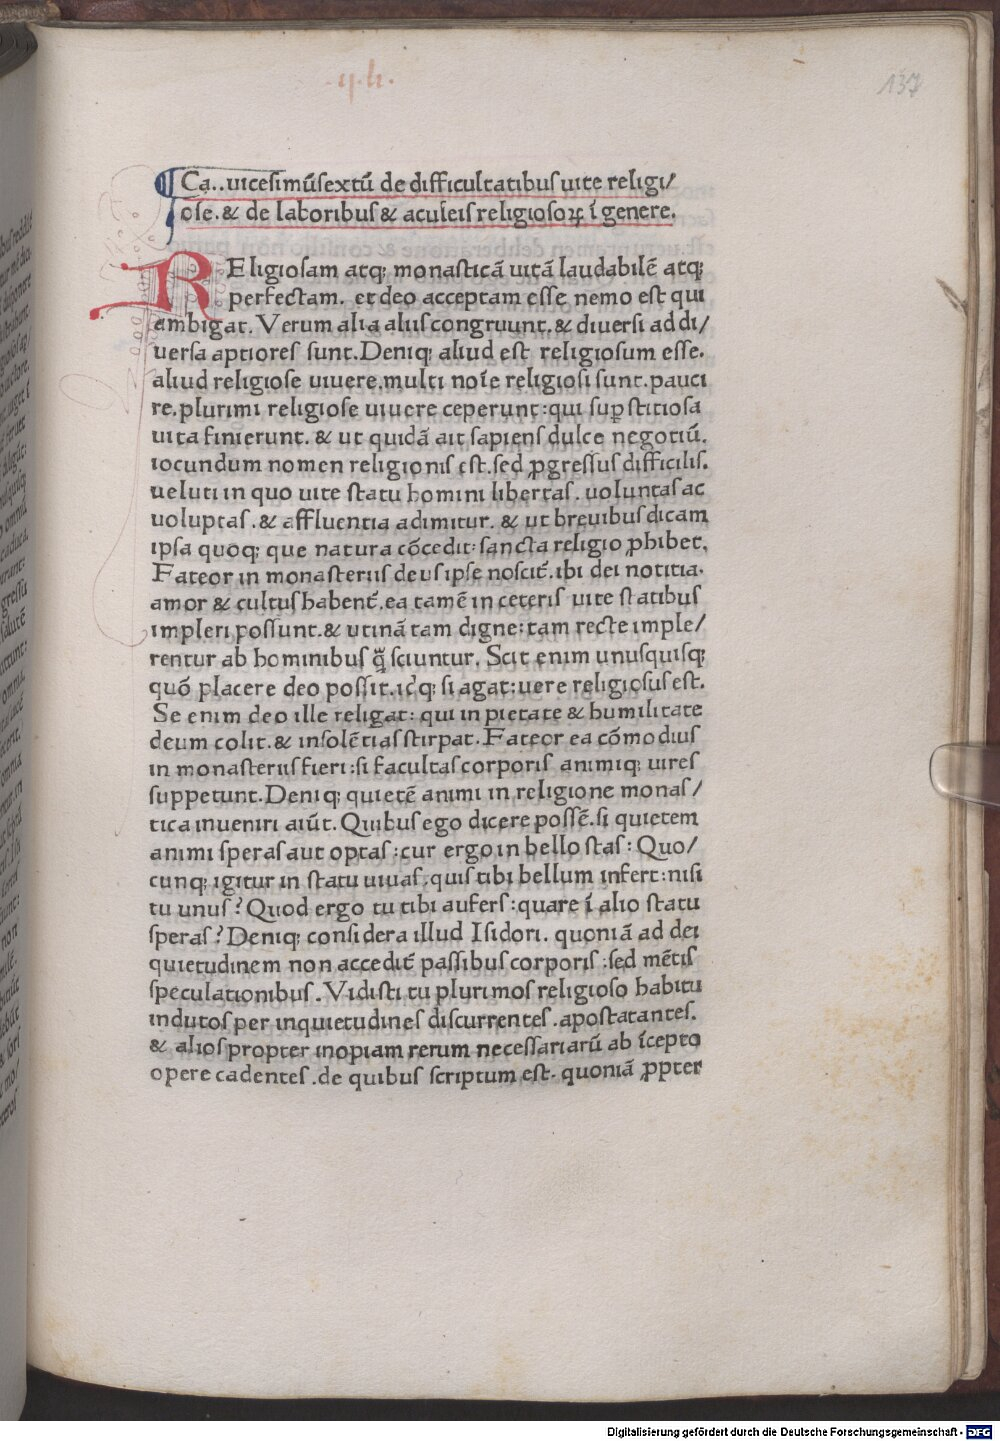 .ij.h.
137
Ca..uicesimũsextũ de difficultatibus uite religi/
ose.& de laboribus & aculeis religiosoꝝ ĩ genere.
REligiosam atq; monasticã uitã laudabilẽ atq;
perfectam. et deo acceptam esse nemo est qui
ambigat. Verum alia aliis congruunt.& diuersi ad di/
uersa aptiores sunt. Deniq; aliud est religiosum esse.
aliud religiose uiuere.multi noĩe religiosi sunt.pauci
re.plurimi religiose uiuere ceperunt:qui suꝑstitiosa
uita finierunt. & ut quidã ait sapiens dulce negotiũ.
iocundum nomen religionis est.sed ꝓgressus difficilis.
ueluti in quo uite statu homini libertas. uoluntas ac
uoluptas.& affluentia adimitur. & ut breuibus dicam
ipsa quoq; que natura cõcedit:sancta religio ꝓhibet.
Fateor in monasteriis deus ipse noscit̃.ibi dei notitia.
amor & cultus habent̃.ea tamẽ in ceteris uite statibus
impleri possunt.& utinã tam digne:tam recte imple/
rentur ab hominibus q̃ sciuntur. Scit enim unusquisq;
quõ placere deo possit.idq; si agat:uere religiosus est.
Se enim deo ille religat: qui in pietate & humilitate
deum colit.& insolẽtias stirpat. Fateor ea cõmodius
in monasteriis fieri:si facultas corporis animiq; uires
suppetunt.Deniq; quietẽ animi in religione monas/
tica inueniri aiũt. Quibus ego dicere possẽ.si quietem
animi speras aut optas:cur ergo in bello stas: Quo/
cunq; igitur in statu uiuas.quis tibi bellum infert:nisi
tu unus? Quod ergo tu tibi aufers:quare ĩ alio statu
speras? Deniq; considera illud Isidori. quoniã ad dei
quietudinem non accedit̃ passibus corporis:sed mẽtis
speculationibus. Vidisti tu plurimos religioso habitu
indutos per inquietudines discurrentes.apostatantes.
& alios propter inopiam rerum necessariarũ ab ĩcepto
opere cadentes.de quibus scriptum est. quoniã ꝓpter
Digitalisierung gefördert durch die Deutsche Forschungsgemeinschaft - DFG